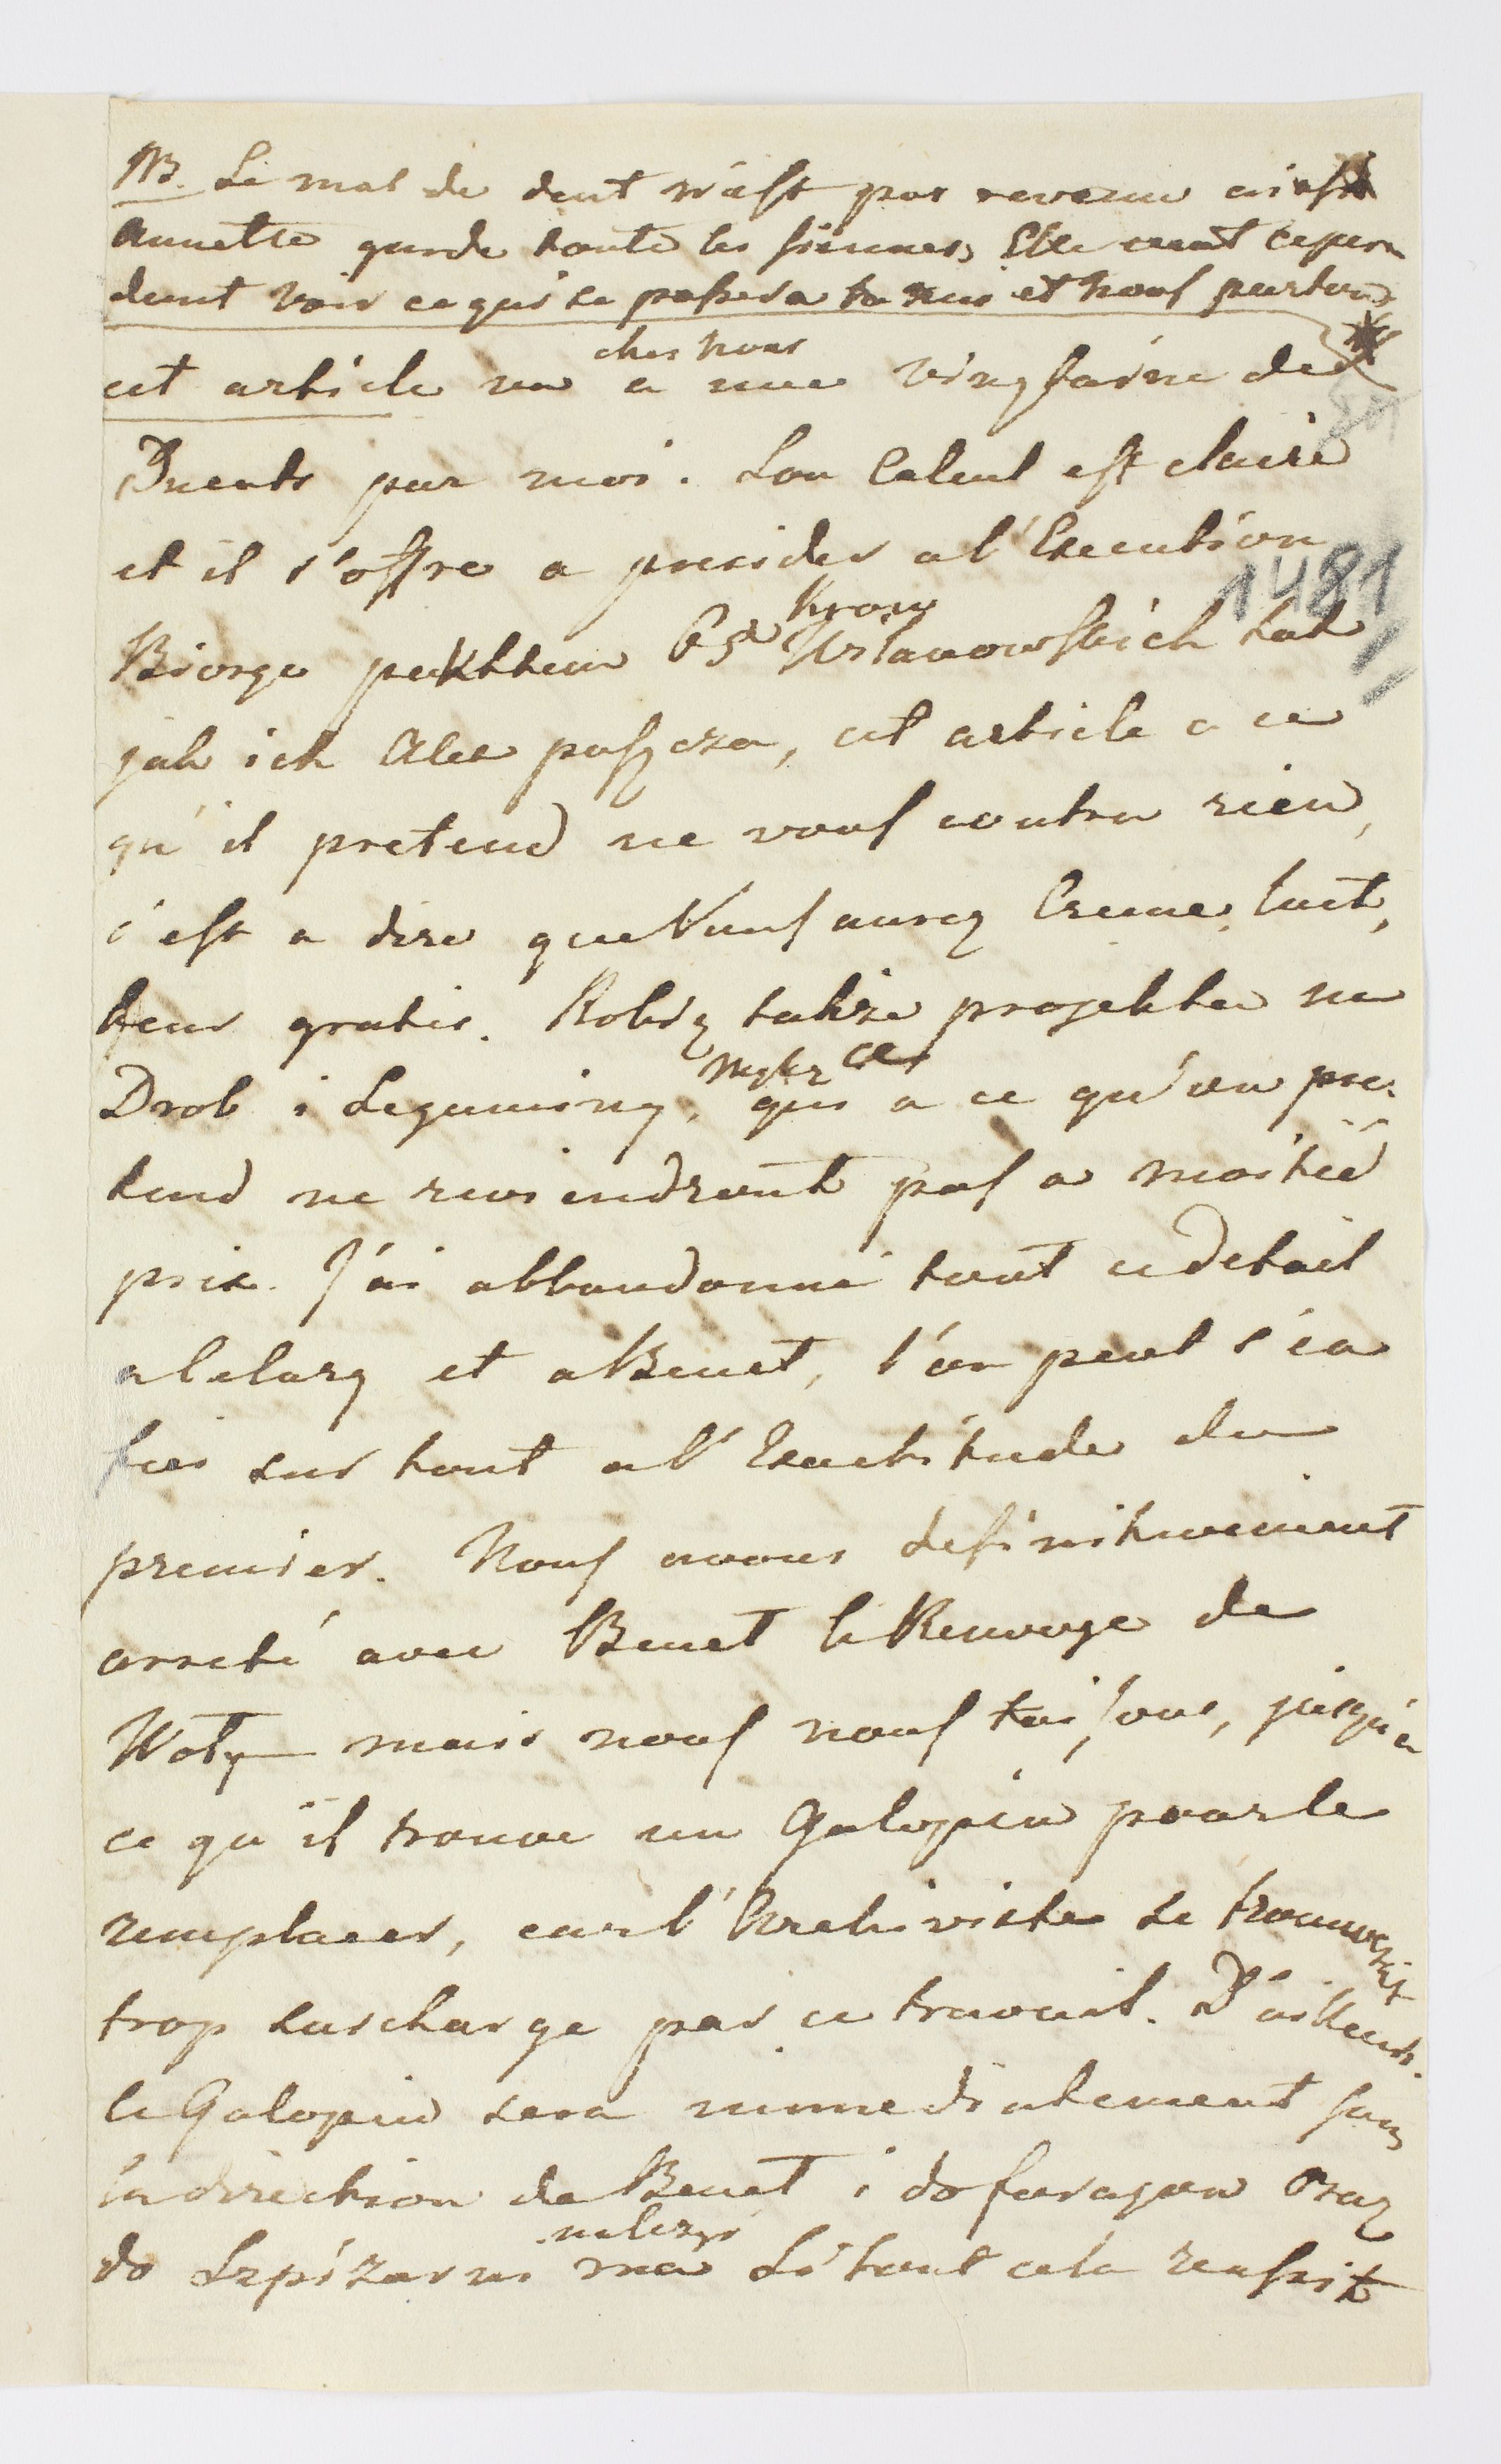 NB. Le mal de dent n'est pas revenu ainsi
Annette garde toute les siennes, Elle veut cepen
dant voir ce qui se passera et nous partons
chez nous
cet article va a une vingtaine de
Ducats par moi. Son Calcul est claire
et il s'offre a presider a l'Execution
1481
Krow
Biorge pukktem 65d Urlanowskich tak
jak ich Alex paszcza, cet article a ce
qu'il pretend ne vous coutra rien,
c'est a dire que Vous aurez Creme, lait,
beur gratis. Robiz takze projekta na
Drob i Leguminy, qui a ce qu'on pre-
tend ne reviendront pas a moitié
prix. J'ai abbandonné tout ce detail
a lelarg et a Benet, l'on peut s'en
fier sur tout a l'Exactitude du
premier. Nous avons definitivement
arreté avec Benet le Renvoye de
Woty mais nous nous taisons, jusqu'a
ce qu'il trouve un Galopin pour le
remplacer, car l'Archiviste se trouveroit
trop surcharge par ce travail. D'ailleurs
le Galopin sera immediatement sous
la direction de Benet i do furazow oraz
nalezyi
do Szpizarni ma Si tout cela reussit